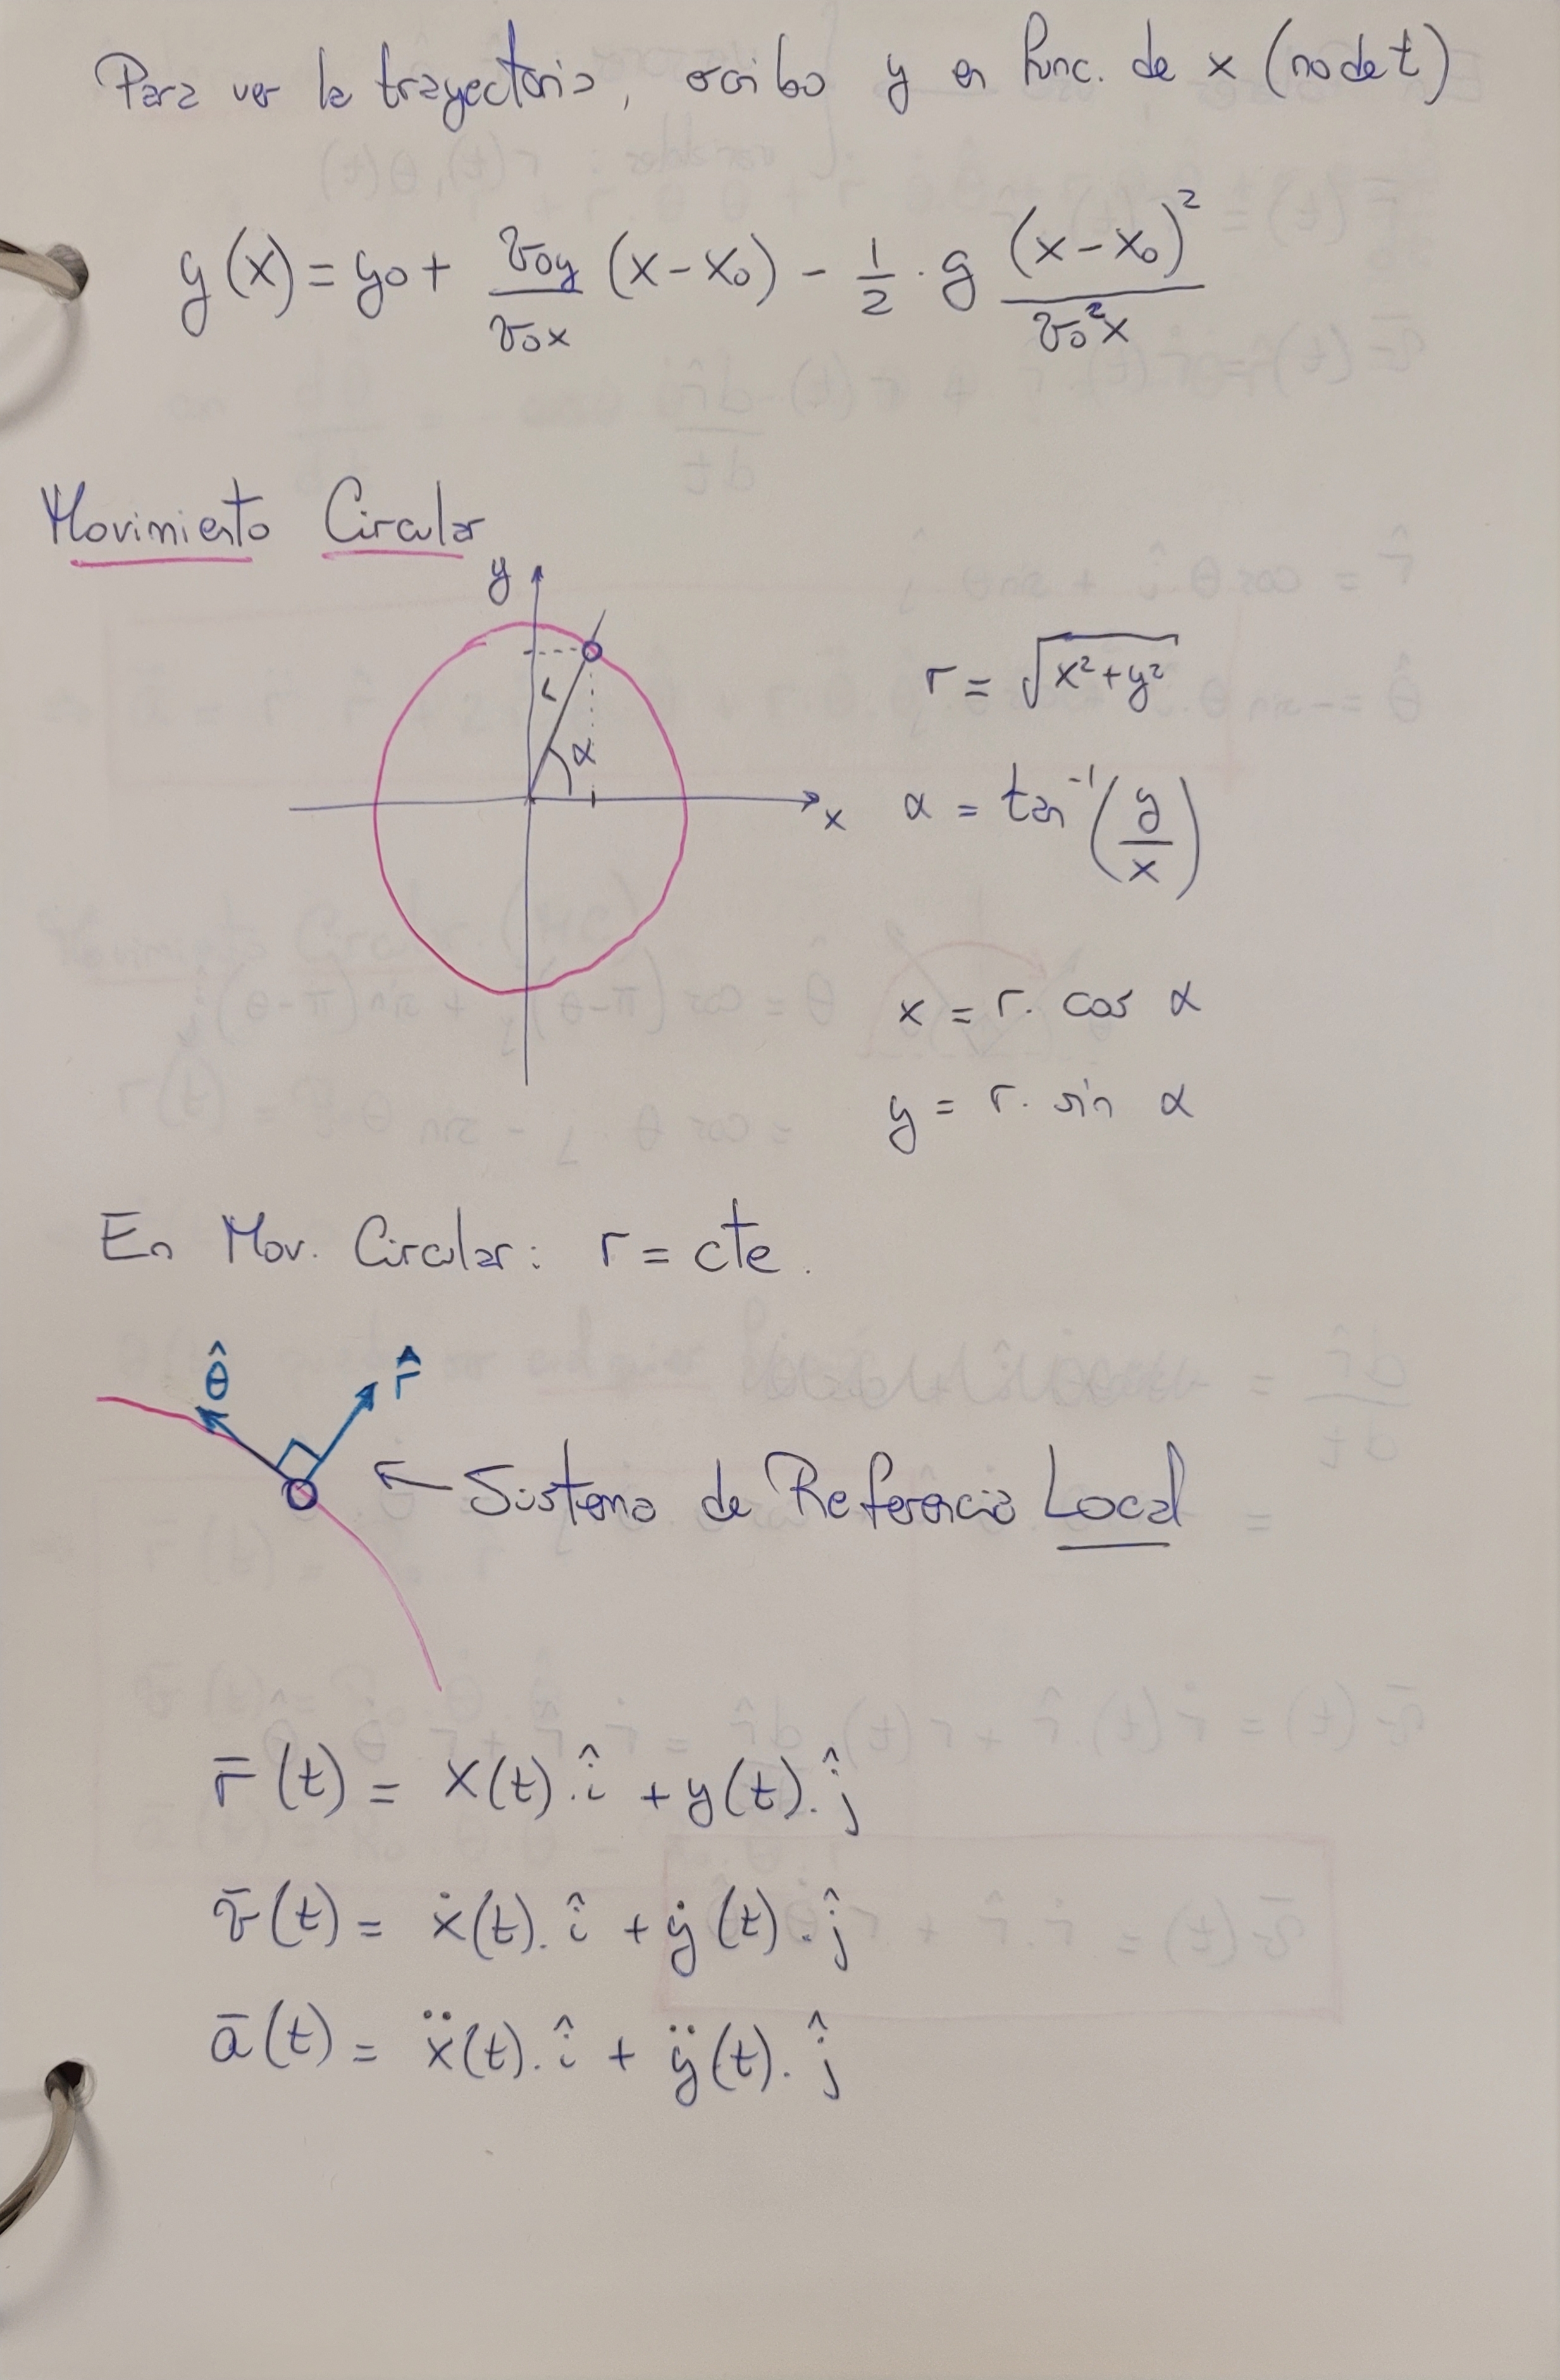 Para ver la trayectoria, escribo y en func. de x (no de t)
y(x) = y₀ + v₀y/v₀x (x-x₀) - 1/2 · g (x-x₀)²/v₀²x
Movimiento Circular
y
r
α
x
r = √(x²+y²)
α = tan⁻¹(y/x)
x = r. cos α
y = r. sin α
En Mov. Circular: r = cte.
θ̂ r̂
← Sistema de Referencia Local
r̄(t) = x(t).î + y(t).ĵ
v̄(t) = ẋ(t).î + ẏ(t).ĵ
ā(t) = ẍ(t).î + ÿ(t).ĵ